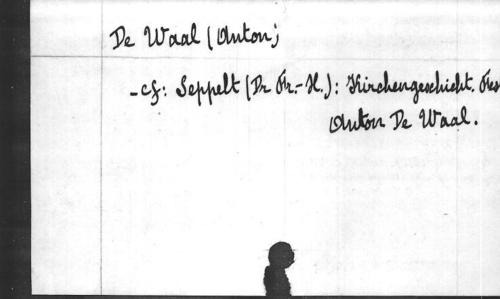 De Waal (Anton)
- cf: Seppelt (Dr Fr.-X.): Kirchengeschicht. Fes
Anton De Waal.